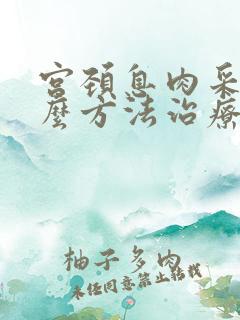 宫颈息肉采
麽方法治療
柚子多肉
未经同意禁止转载